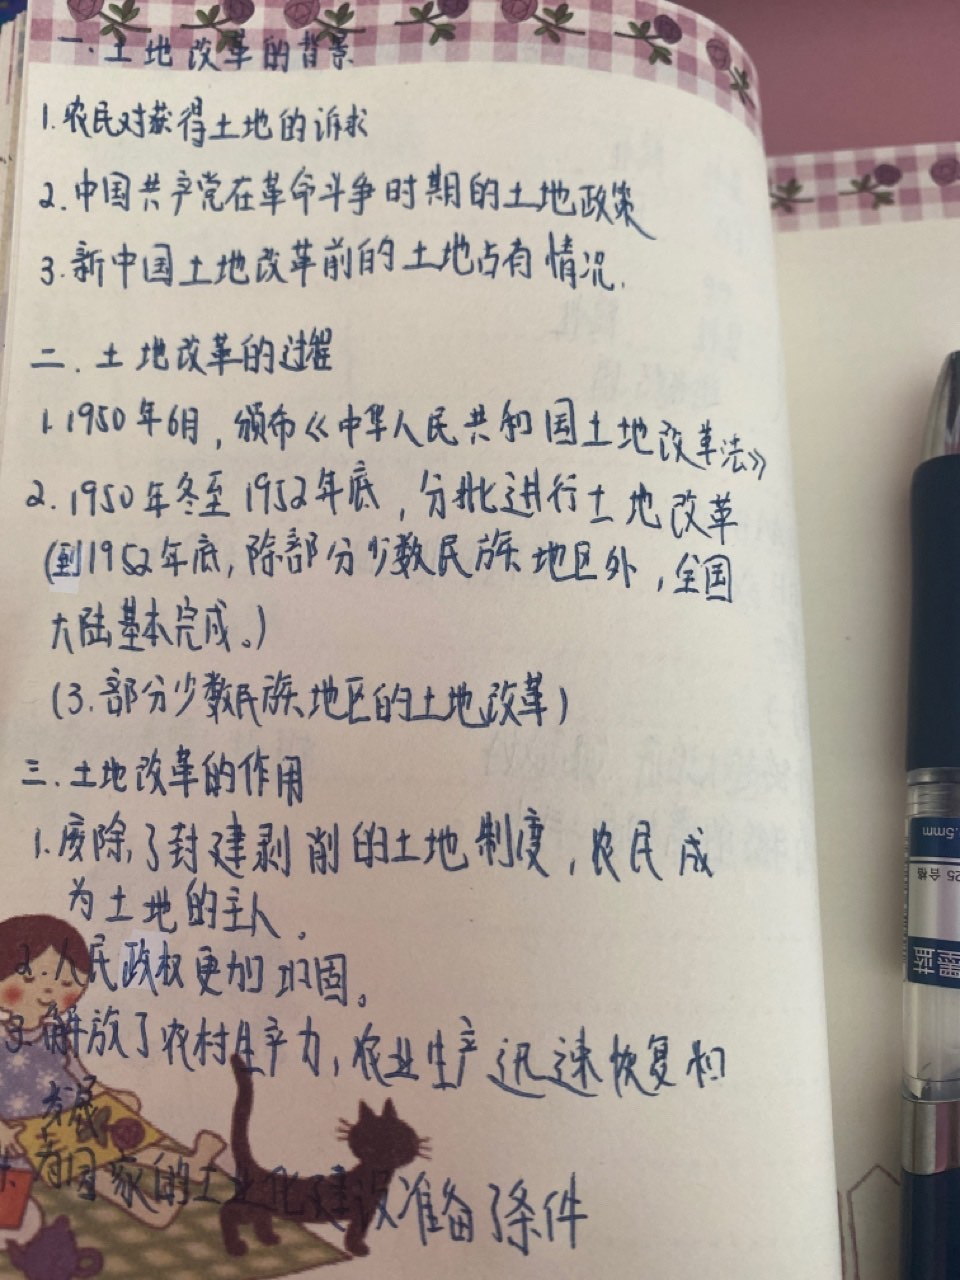 一.土地改革的背景
1.农民对获得土地的诉求
2.中国共产党在革命斗争时期的土地政策
3.新中国土地改革前的土地占有情况.
二.土地改革的过程
1.1950年6月,颁布《中华人民共和国土地改革法》
2.1950年冬至1952年底,分批进行土地改革
(到1952年底,除部分少数民族地区外,全国
大陆基本完成。)
(3.部分少数民族地区的土地改革)
三.土地改革的作用
1.废除了封建剥削的土地制度,农民成
为土地的主人。
2.人民政权更加巩固。
3.解放了农村生产力,农业生产迅速恢复和
发展
4.为国家的工业化建设准备了条件
.5mm
25 合格
墨蓝